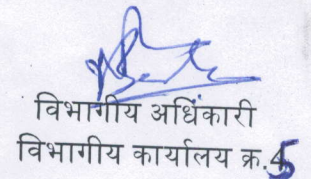 विभागीय अधिकारी
विभागीय कार्यालय क्र.5